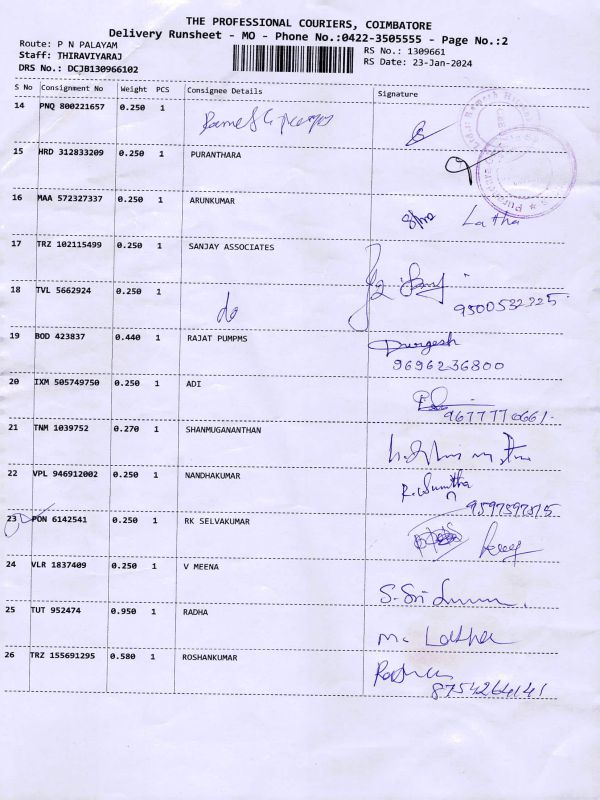 THE PROFESSIONAL COURIERS, COIMBATORE
Delivery Runsheet - MO - Phone No.:0422-3505555 - Page No.:2
Route: P N PALAYAM
Staff: THIRAVIYARAJ
DRS No.: DCJB130966102
RS No.: 1309661
RS Date: 23-Jan-2024
S No Consignment No Weight PCS Consignee Details Signature
14 PNQ 800221657 0.250 1
15 HRD 312833209 0.250 1 PURANTHARA
16 MAA 572327337 0.250 1 ARUNKUMAR
Latha
17 TRZ 102115499 0.250 1 SANJAY ASSOCIATES
18 TVL 5662924 0.250 1 do
9500532225
19 BOD 423837 0.440 1 RAJAT PUMPMS Durgesh
9696236800
20 IXM 505749750 0.250 1 ADI
9677770661.
21 TNM 1039752 0.270 1 SHANMUGANANTHAN
22 VPL 946912002 0.250 1 NANDHAKUMAR
23 PON 6142541 0.250 1 RK SELVAKUMAR
24 VLR 1837409 0.250 1 V MEENA
25 TUT 952474 0.950 1 RADHA
26 TRZ 155691295 0.580 1 ROSHANKUMAR
8754264141